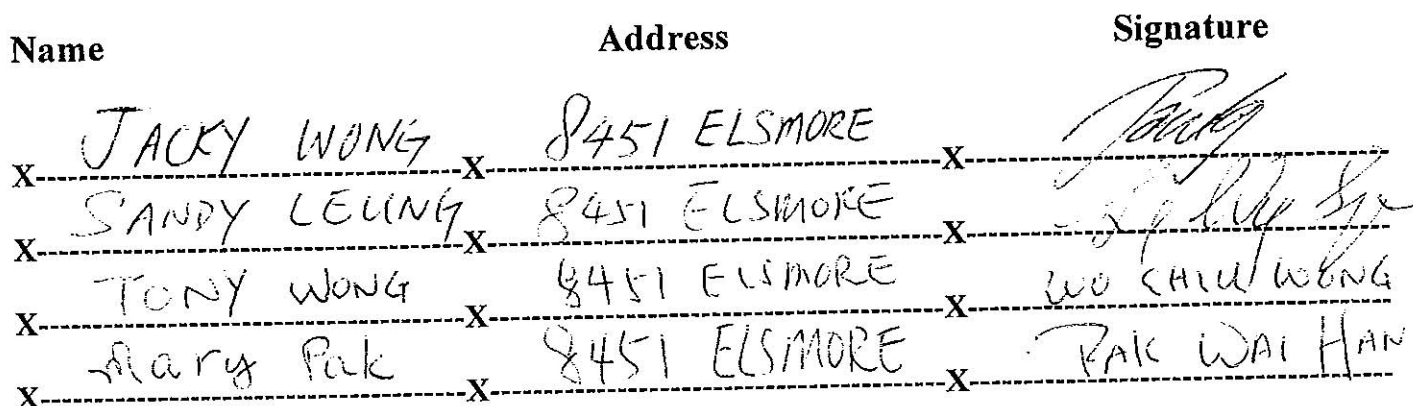 Name Address Signature
X JACKY WONG X 8451 ELSMORE X
X SANDY LEUNG X 8451 ELSMORE X
X TONY WONG X 8451 ELSMORE X WO CHIU WONG
X Mary Pak X 8451 ELSMORE X PAK WAI HAN